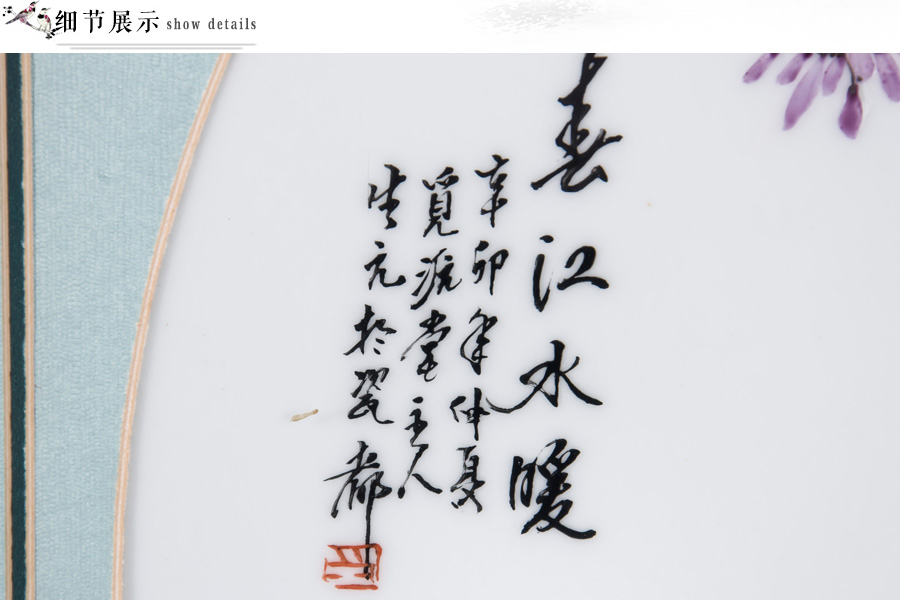 细节展示 show details
春江水暖
辛卯年仲夏
觅源堂主人
生元於瓷都